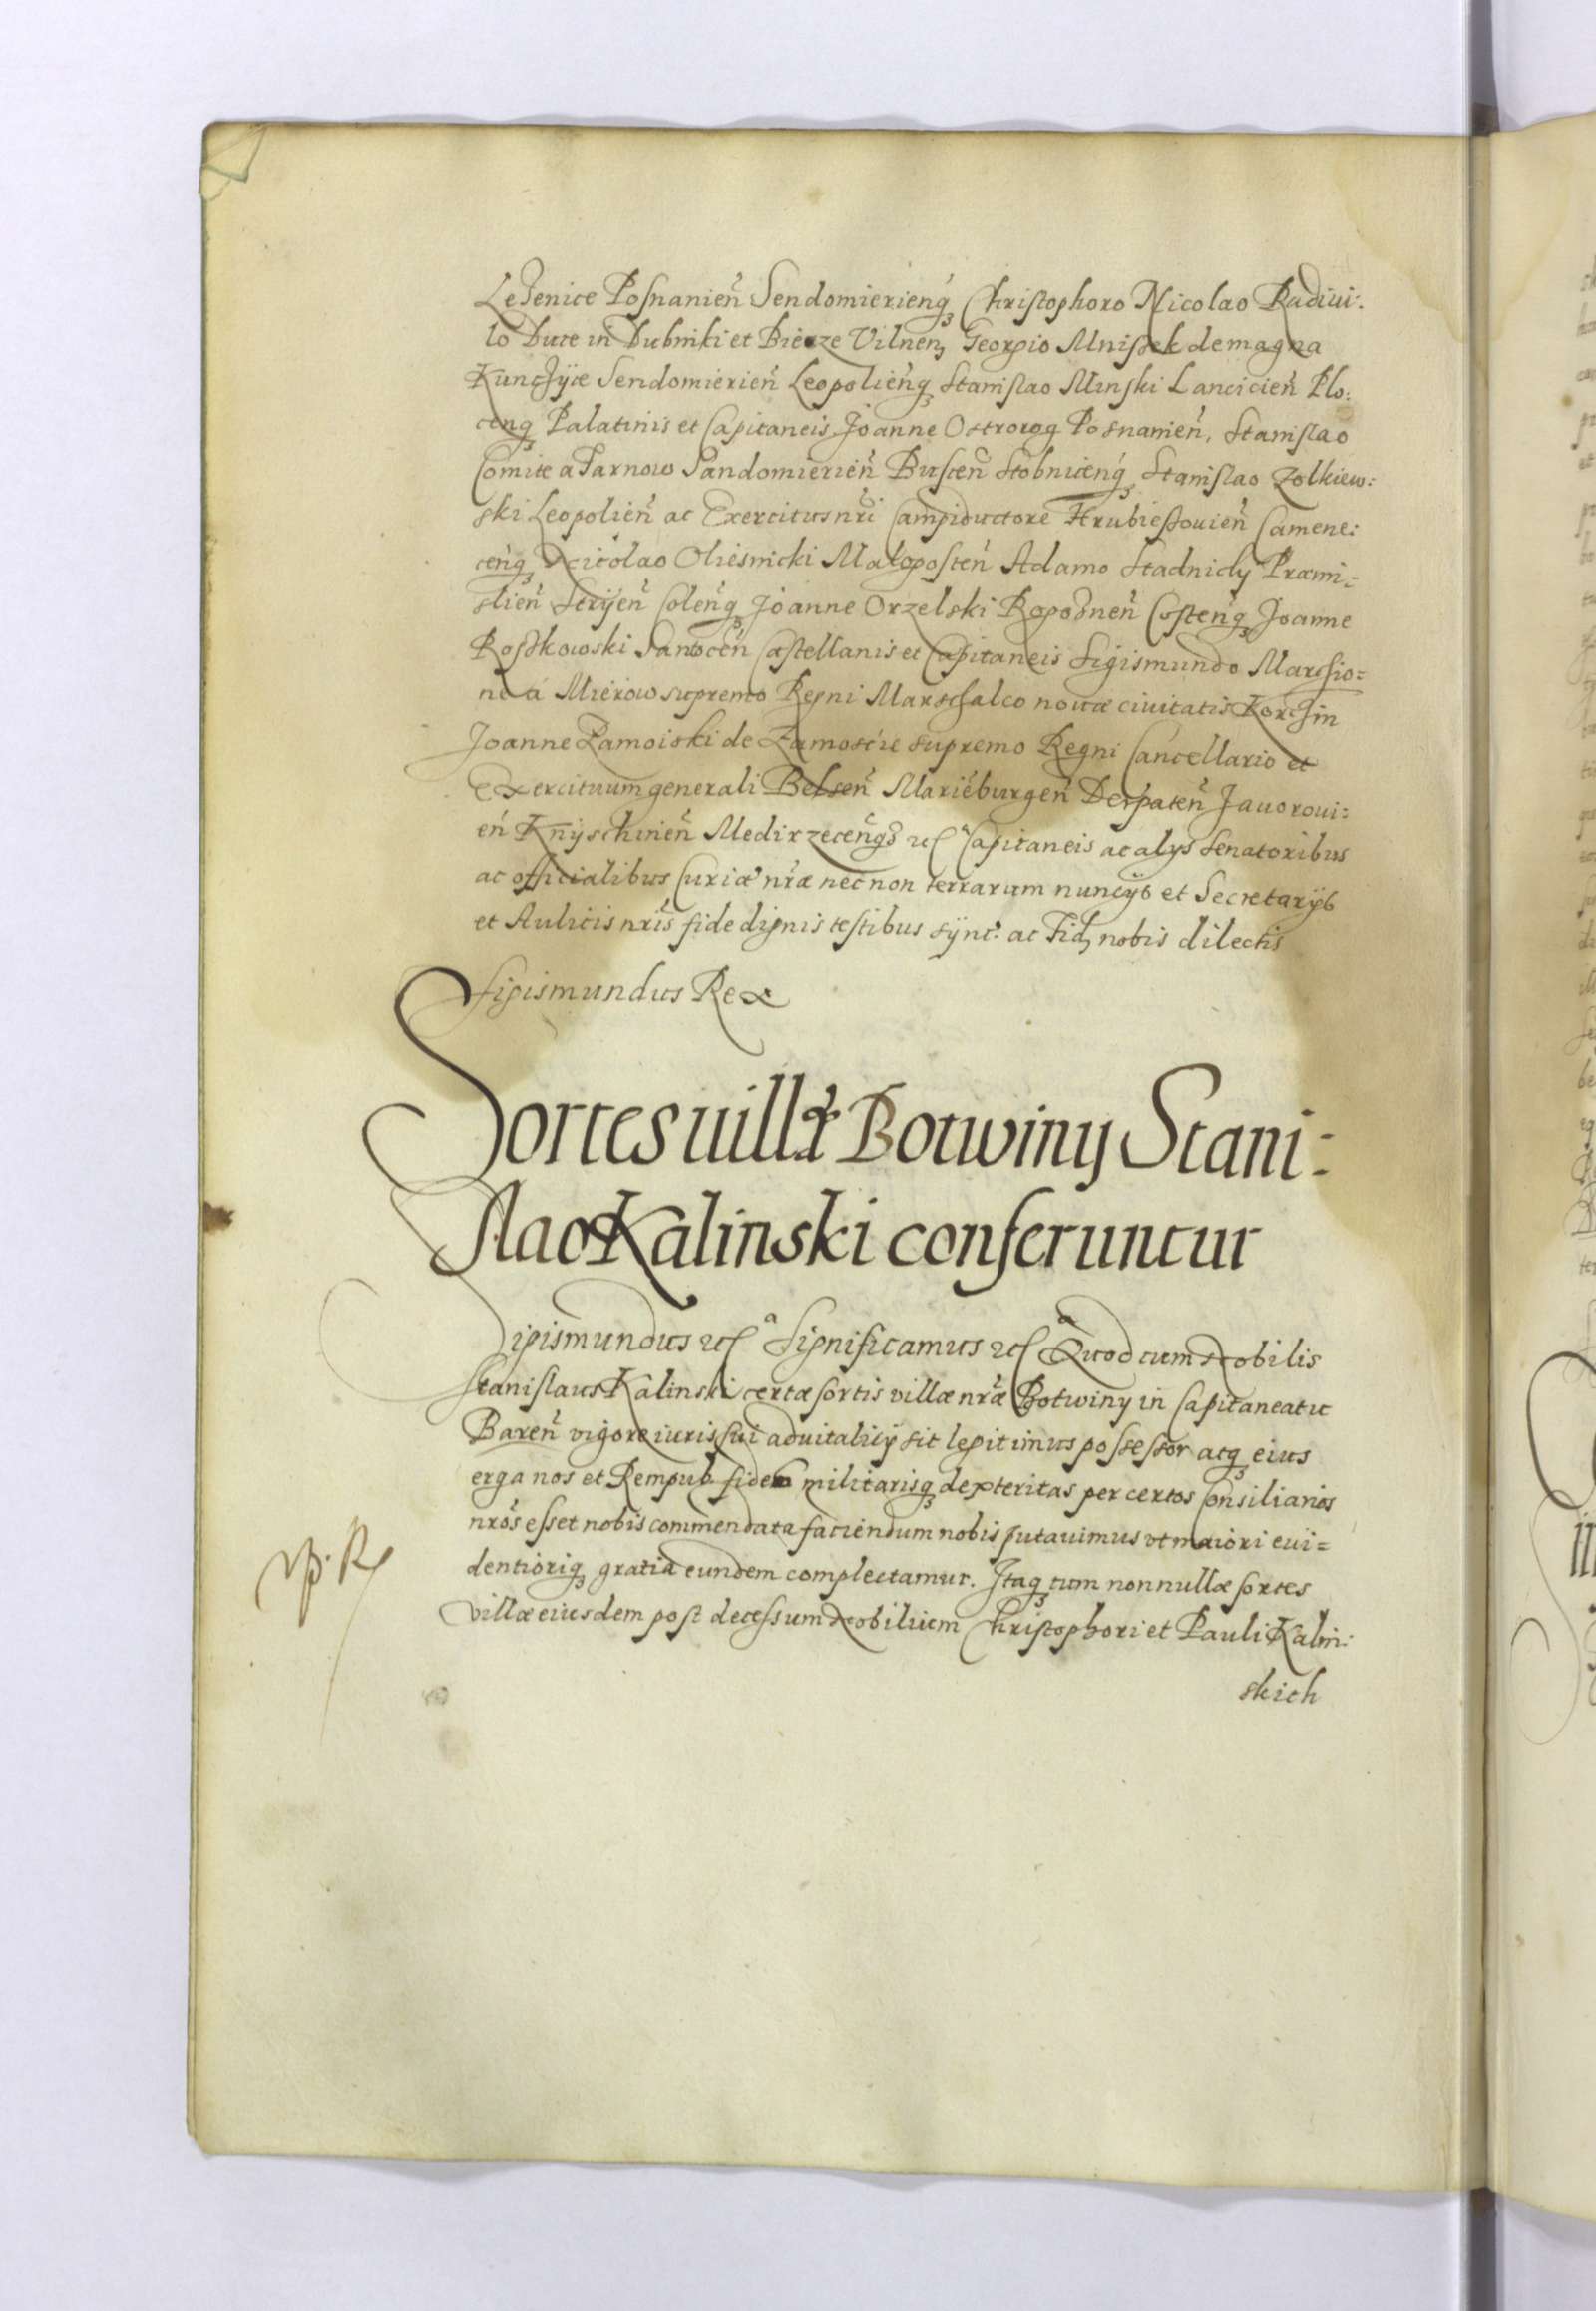 Lesenice Posnanień Sendomierieńq₃ Christophoro Nicolao Radiui:
lo Duce in Dubniki et Bierze Vilneń, Georgio Mnissek de magna
Kunczÿce Sendomierień Leopolieńq₃ Stanislao Minski Lancicień Plo:
ceńq₃ Palatinis et Capitaneis Joanne Ostrorog Posnanień, Stanislao
Comite a Tarnow Sandomierień Busceń Stobniceńq₃ Stanislao Zolkiew:
ski Leopolień ac Exercitus nr̃i Campiductore Hrubiessouień Camene:
ceńq₃ Nicolao Oliesnicki Malogosteń Adamo Stadnicky Præmi=
slień Strÿeń Coleńq₃ Joanne Orzelski Rogozneń Costeńq₃ Joanne
Roszkowski Santoceń Castellanis et Capitaneis Sigismundo Marchio=
ne á Mierow supremo Regni Marschalco nouæ ciuitatis Korchin
Joanne Zamoiski de Zamoscie supremo Regni Cancellario et
Exercituum generali Belseń Marieburgeń Derpateń Jauoroui=
eń Knyschinień Medirzeceńq₃ etc̃ Capitaneis ac alys Senatoribus
ac officialibus Curiæ nr̃æ nec non terrarum nuncÿs et Secretarÿs
et Aulicis nr̃is fide dignis testibus synč: ac Fid, nobis dilectis
Sigismundus Rex
Sortes uillæ Botwiny Stani=
slao Kalinski conferuntur
Sigismundus etc̃ Significamus etc̃ Quod cum Nobilis
Stanislaus Kalinski certæ sortis villæ nr̃æ Botwiny in Capitaneatu
Bareń vigore iuris sui aduitalicÿ sit legitimus possessor atq₃ eius
erga nos et Rempub fides militarisq₃ dexteritas per certos Consiliarios
nr̃os esset nobis commendata faciendum nobis putauimus vt maiori eui=
dentioriq₃ gratia eundem complectamur. Itaq₃ cum nonnullæ sortes
villæ eiusdem post decessum Nobilium Christophori et Pauli Kalin:
skich